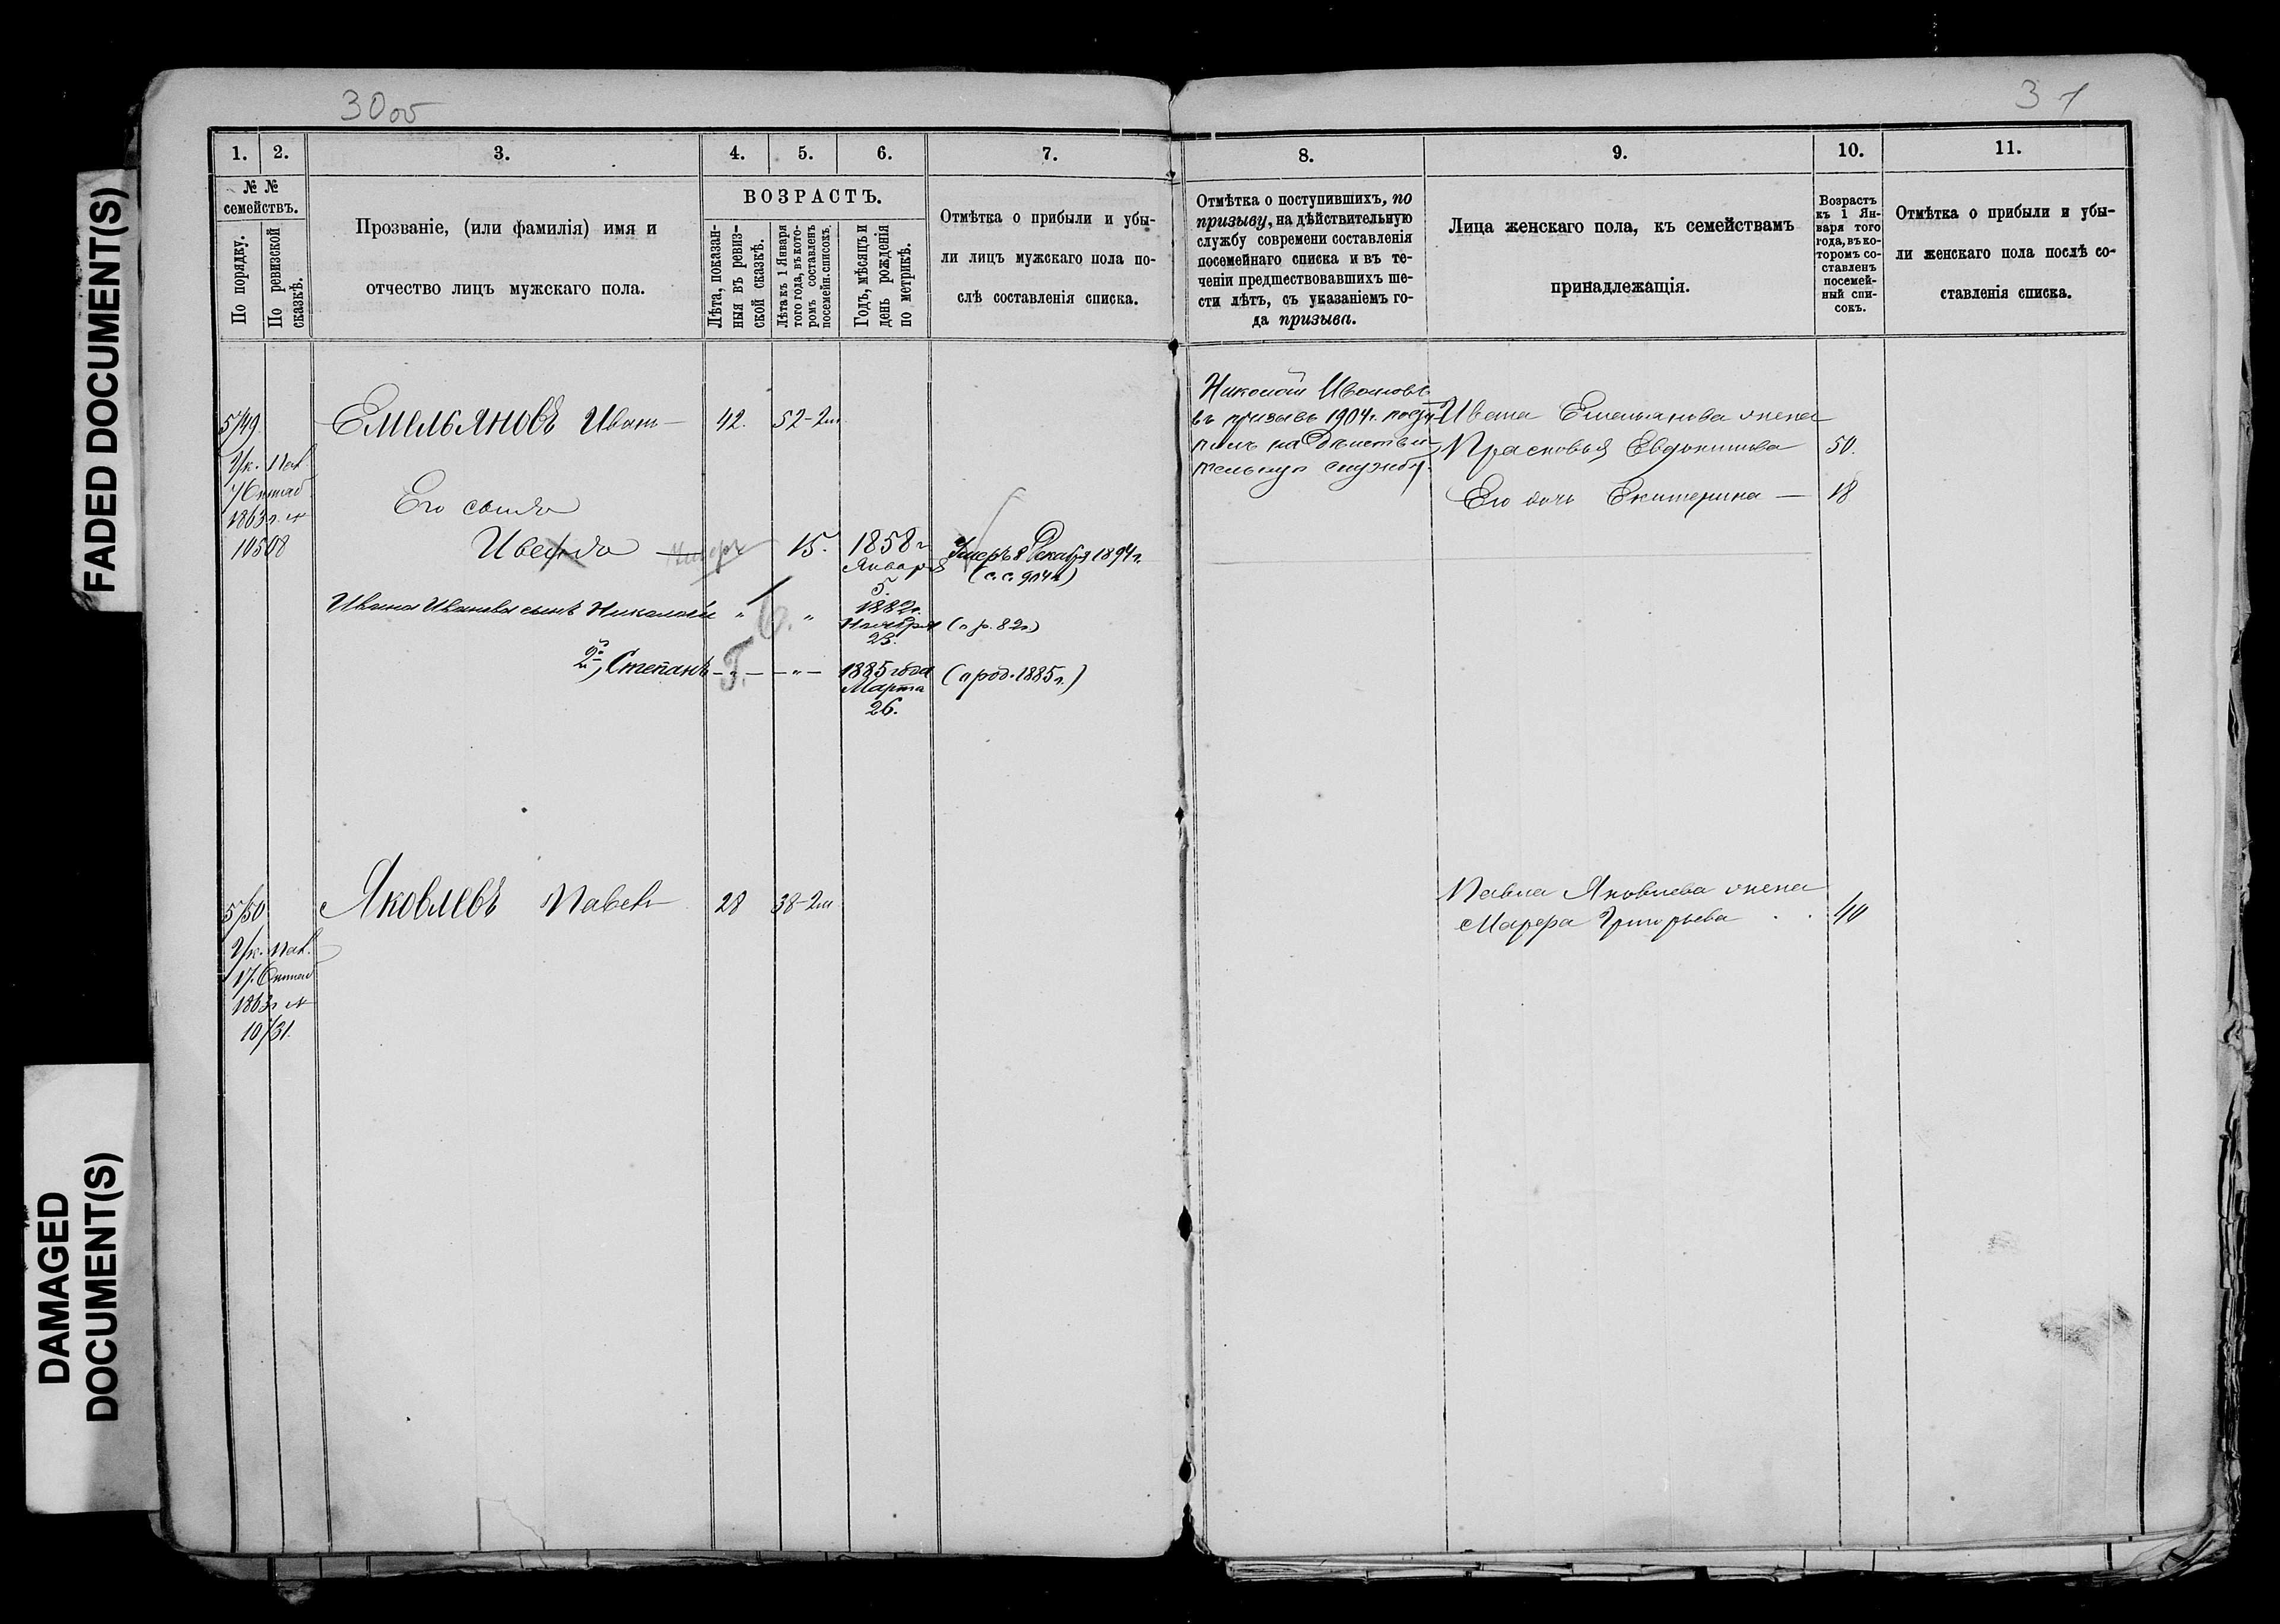 FADED DOCUMENT(S)
DAMAGED
DOCUMENT(S)
30 об
1.
2.
3.
4.
5.
6.
7.
№ №
семействъ.
По порядку.
По ревизской
сказкѣ.
Прозваніе, (или фамилія) имя и
отчество лицъ мужскаго пола.
ВОЗРАСТЪ.
Лѣта, показан-
ныя въ ревиз-
ской сказкѣ.
Лѣта къ 1 Января
того года, въ кото-
ромъ составленъ
посемейн. списокъ.
Годъ, мѣсяцъ и
день рожденія
по метрикѣ.
Отмѣтка о прибыли и убы-
ли лицъ мужскаго пола по-
слѣ составленія списка.
5/49
Ук. Пал.
1863 г. №
10508
Емельяновъ Иванъ
42.
52-2м
Его сынъ
Иванъ
умеръ
15.
1858 г
Января
5.
Умеръ 8 Декабря 1894 г.
Ивана Иванова сынъ Николай
"
"
1882 г.
Ноября
23.
(о р. 82 г)
2й, Степанъ
- " -
- " -
1885 года
Марта
26.
(о род. 1885 г.)
5/50
Ук. Пал.
17. Октяб
1863 г №
10731.
Яковлевъ Павелъ
28
38-2м
31
8.
9.
10.
11.
Отмѣтка о поступившихъ, по
призыву, на дѣйствительную
службу современи составленія
посемейнаго списка и въ те-
ченіи предшествовавшихъ ше-
сти лѣтъ, съ указаніемъ го-
да призыва.
Лица женскаго пола, къ семействамъ
принадлежащія.
Возрастъ
къ 1 Ян-
варя того
года, въ ко-
торомъ со-
ставленъ
посемей-
ный спи-
сокъ.
Отмѣтка о прибыли и убы-
ли женскаго пола послѣ со-
ставленія списка.
Николай Ивановъ
въ призывъ 1904 г. посту-
пилъ на дѣйстви-
тельную службу.
Ивана Емельянова жена
Прасковья Евдокимова
50.
Его дочь Екатерина
18
Павла Яковлева жена
Марфа Григорьева
40